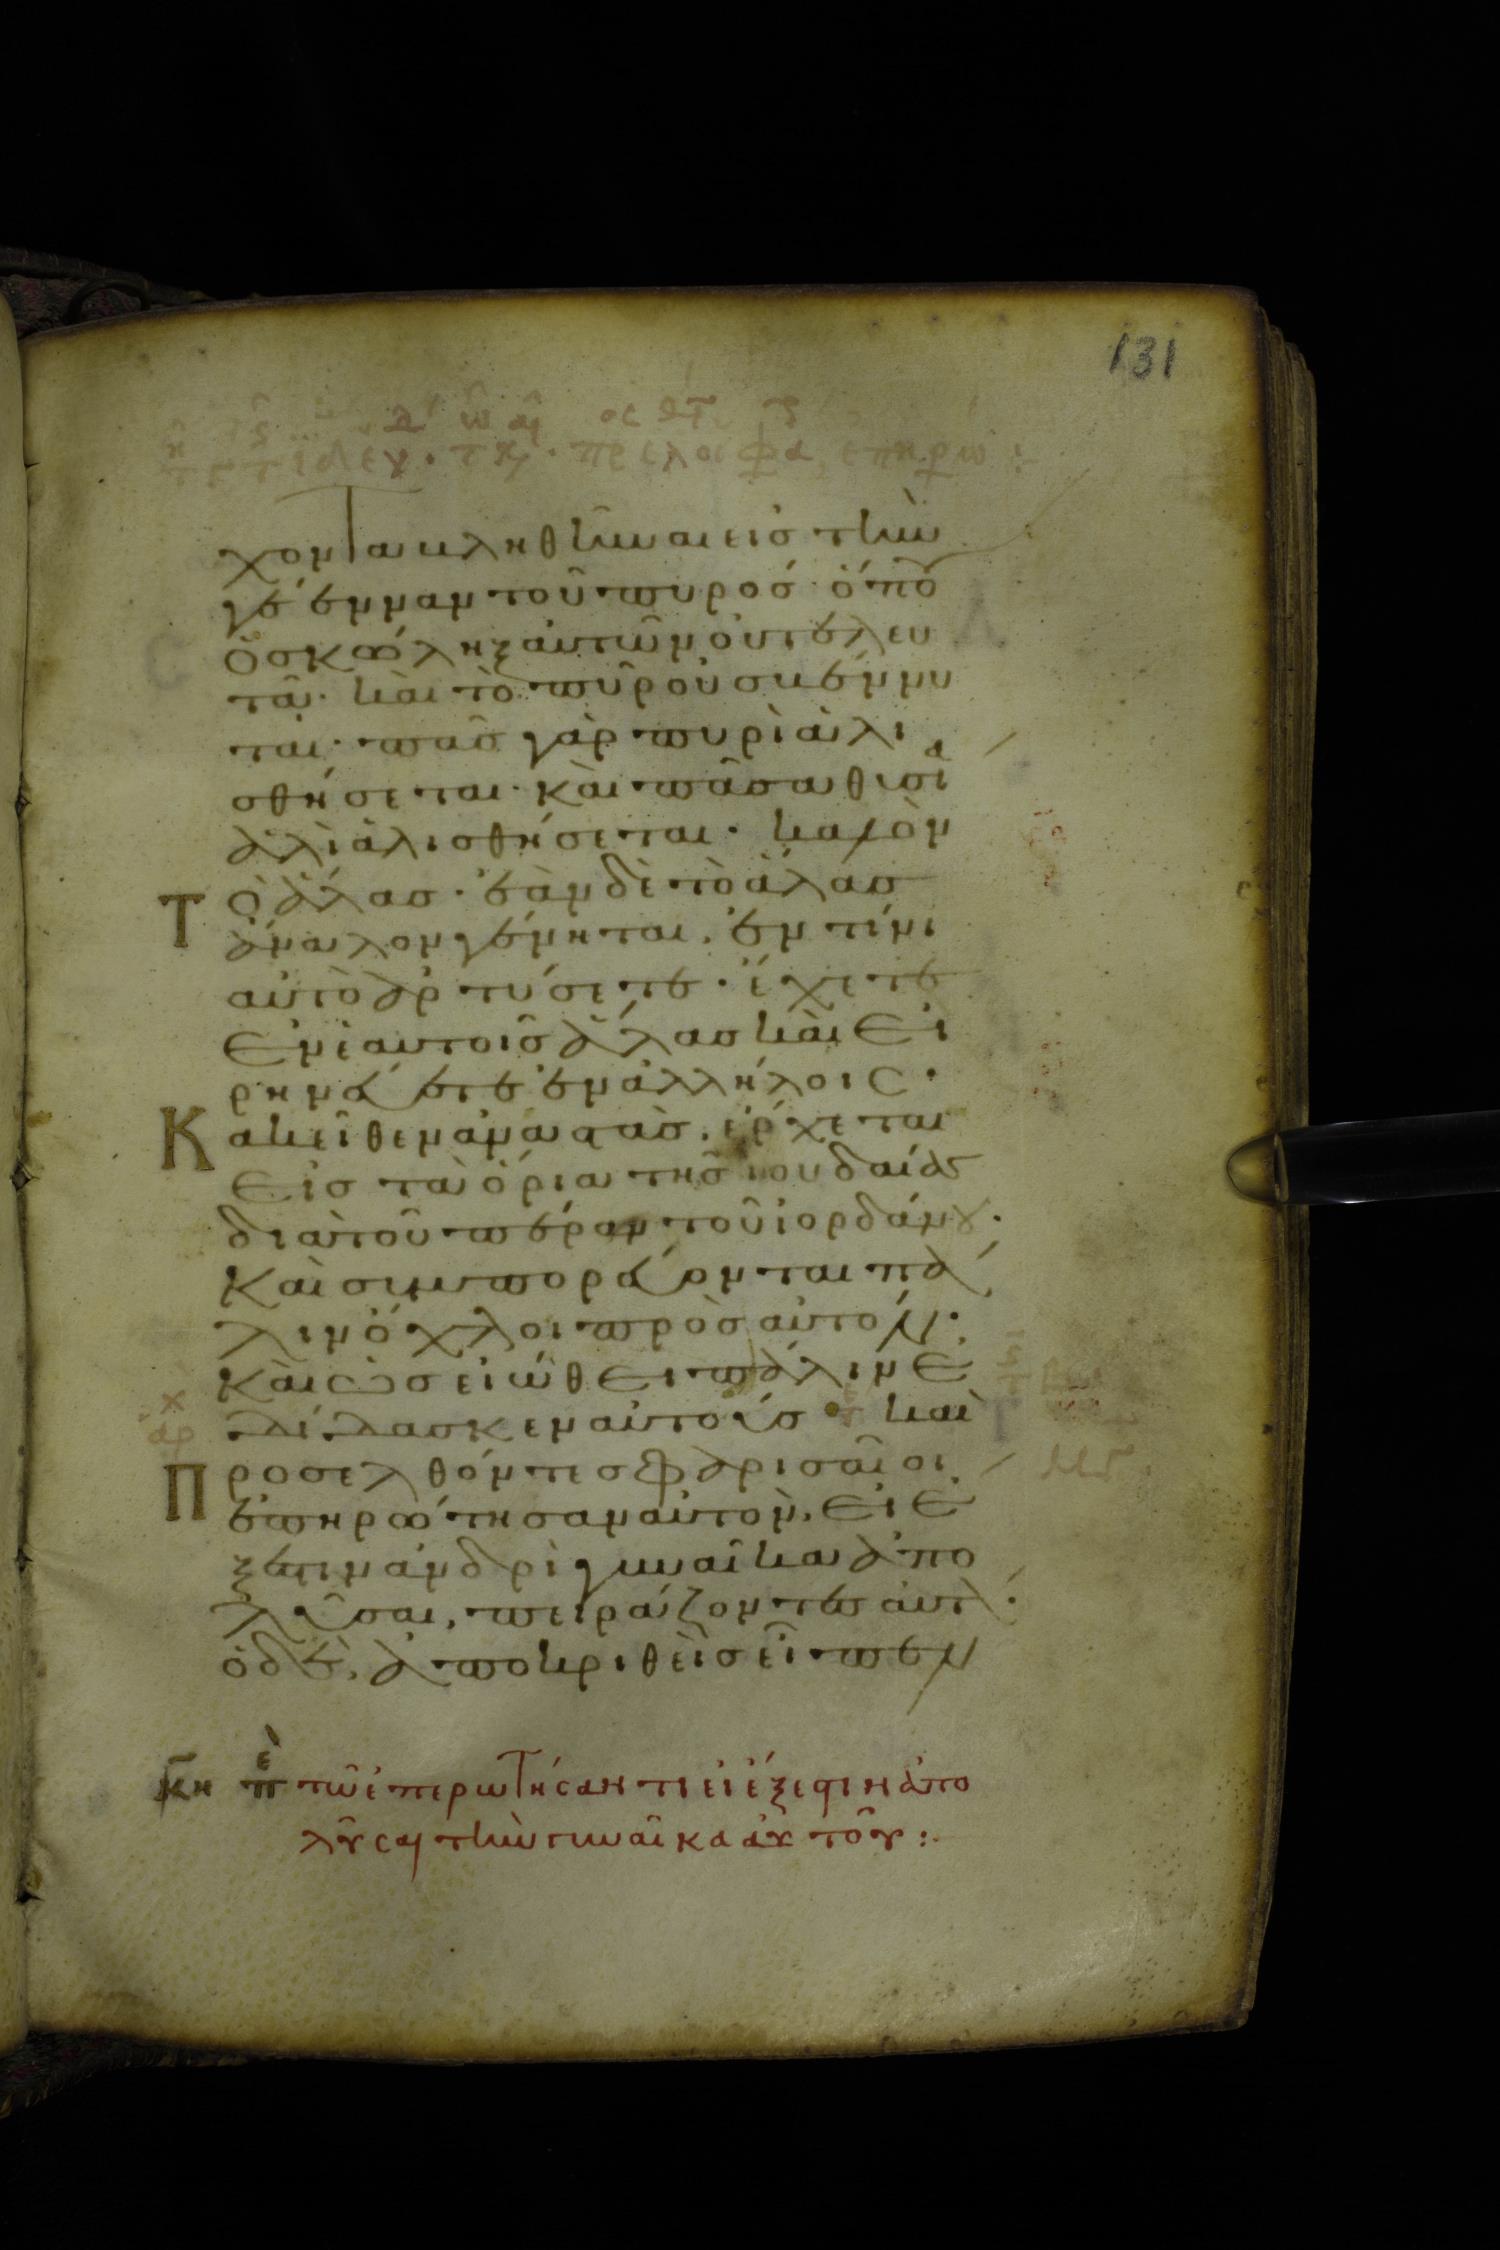 131
χοντα κληθῆναι εἰς τὴν
γέενναν τοῦ πυρός· ὅπου
ὁ σκώληξ αὐτῶν οὐ τελευ
τᾷ· καὶ τὸ πῦρ οὐ σβέννυ
ται· πᾶς γὰρ πυρὶ ἁλι
σθήσεται· καὶ πᾶσα θυσία
ἁλὶ ἁλισθήσεται· καλὸν
Τ ὸ ἅλας· ἐὰν δὲ τὸ ἅλας
ἄναλον γένηται, ἐν τίνι
αὐτὸ ἀρτύσετε· ἔχετε
ἐν ἑαυτοῖς ἅλας καὶ εἰ
ρηνεύετε ἐν ἀλλήλοις·
Κ ακεῖθεν ἀναστὰς, ἔρχεται
εἰς τὰ ὅρια τῆς ἰουδαίας
διὰ τοῦ πέραν τοῦ ἰορδάνου·
καὶ συμπορεύονται πά
λιν ὄχλοι πρὸς αὐτόν·
καὶ ὡς εἰώθει πάλιν ἐ
δίδασκεν αὐτούς· καὶ
Π ροσελθόντες φαρισαῖοι
ἐπηρώτησαν αὐτὸν, εἰ ἔ
ξεστιν ἀνδρὶ γυναῖκα ἀπο
λῦσαι, πειράζοντες αὐτόν·
ὁ δὲ, ἀποκριθεὶς εἶπεν
κη πε τῶ ἐπερωτήσαντι εἰ ἔξεστιν ἀπο
λῦσαι τὴν γυναῖκα αὐτοῦ: